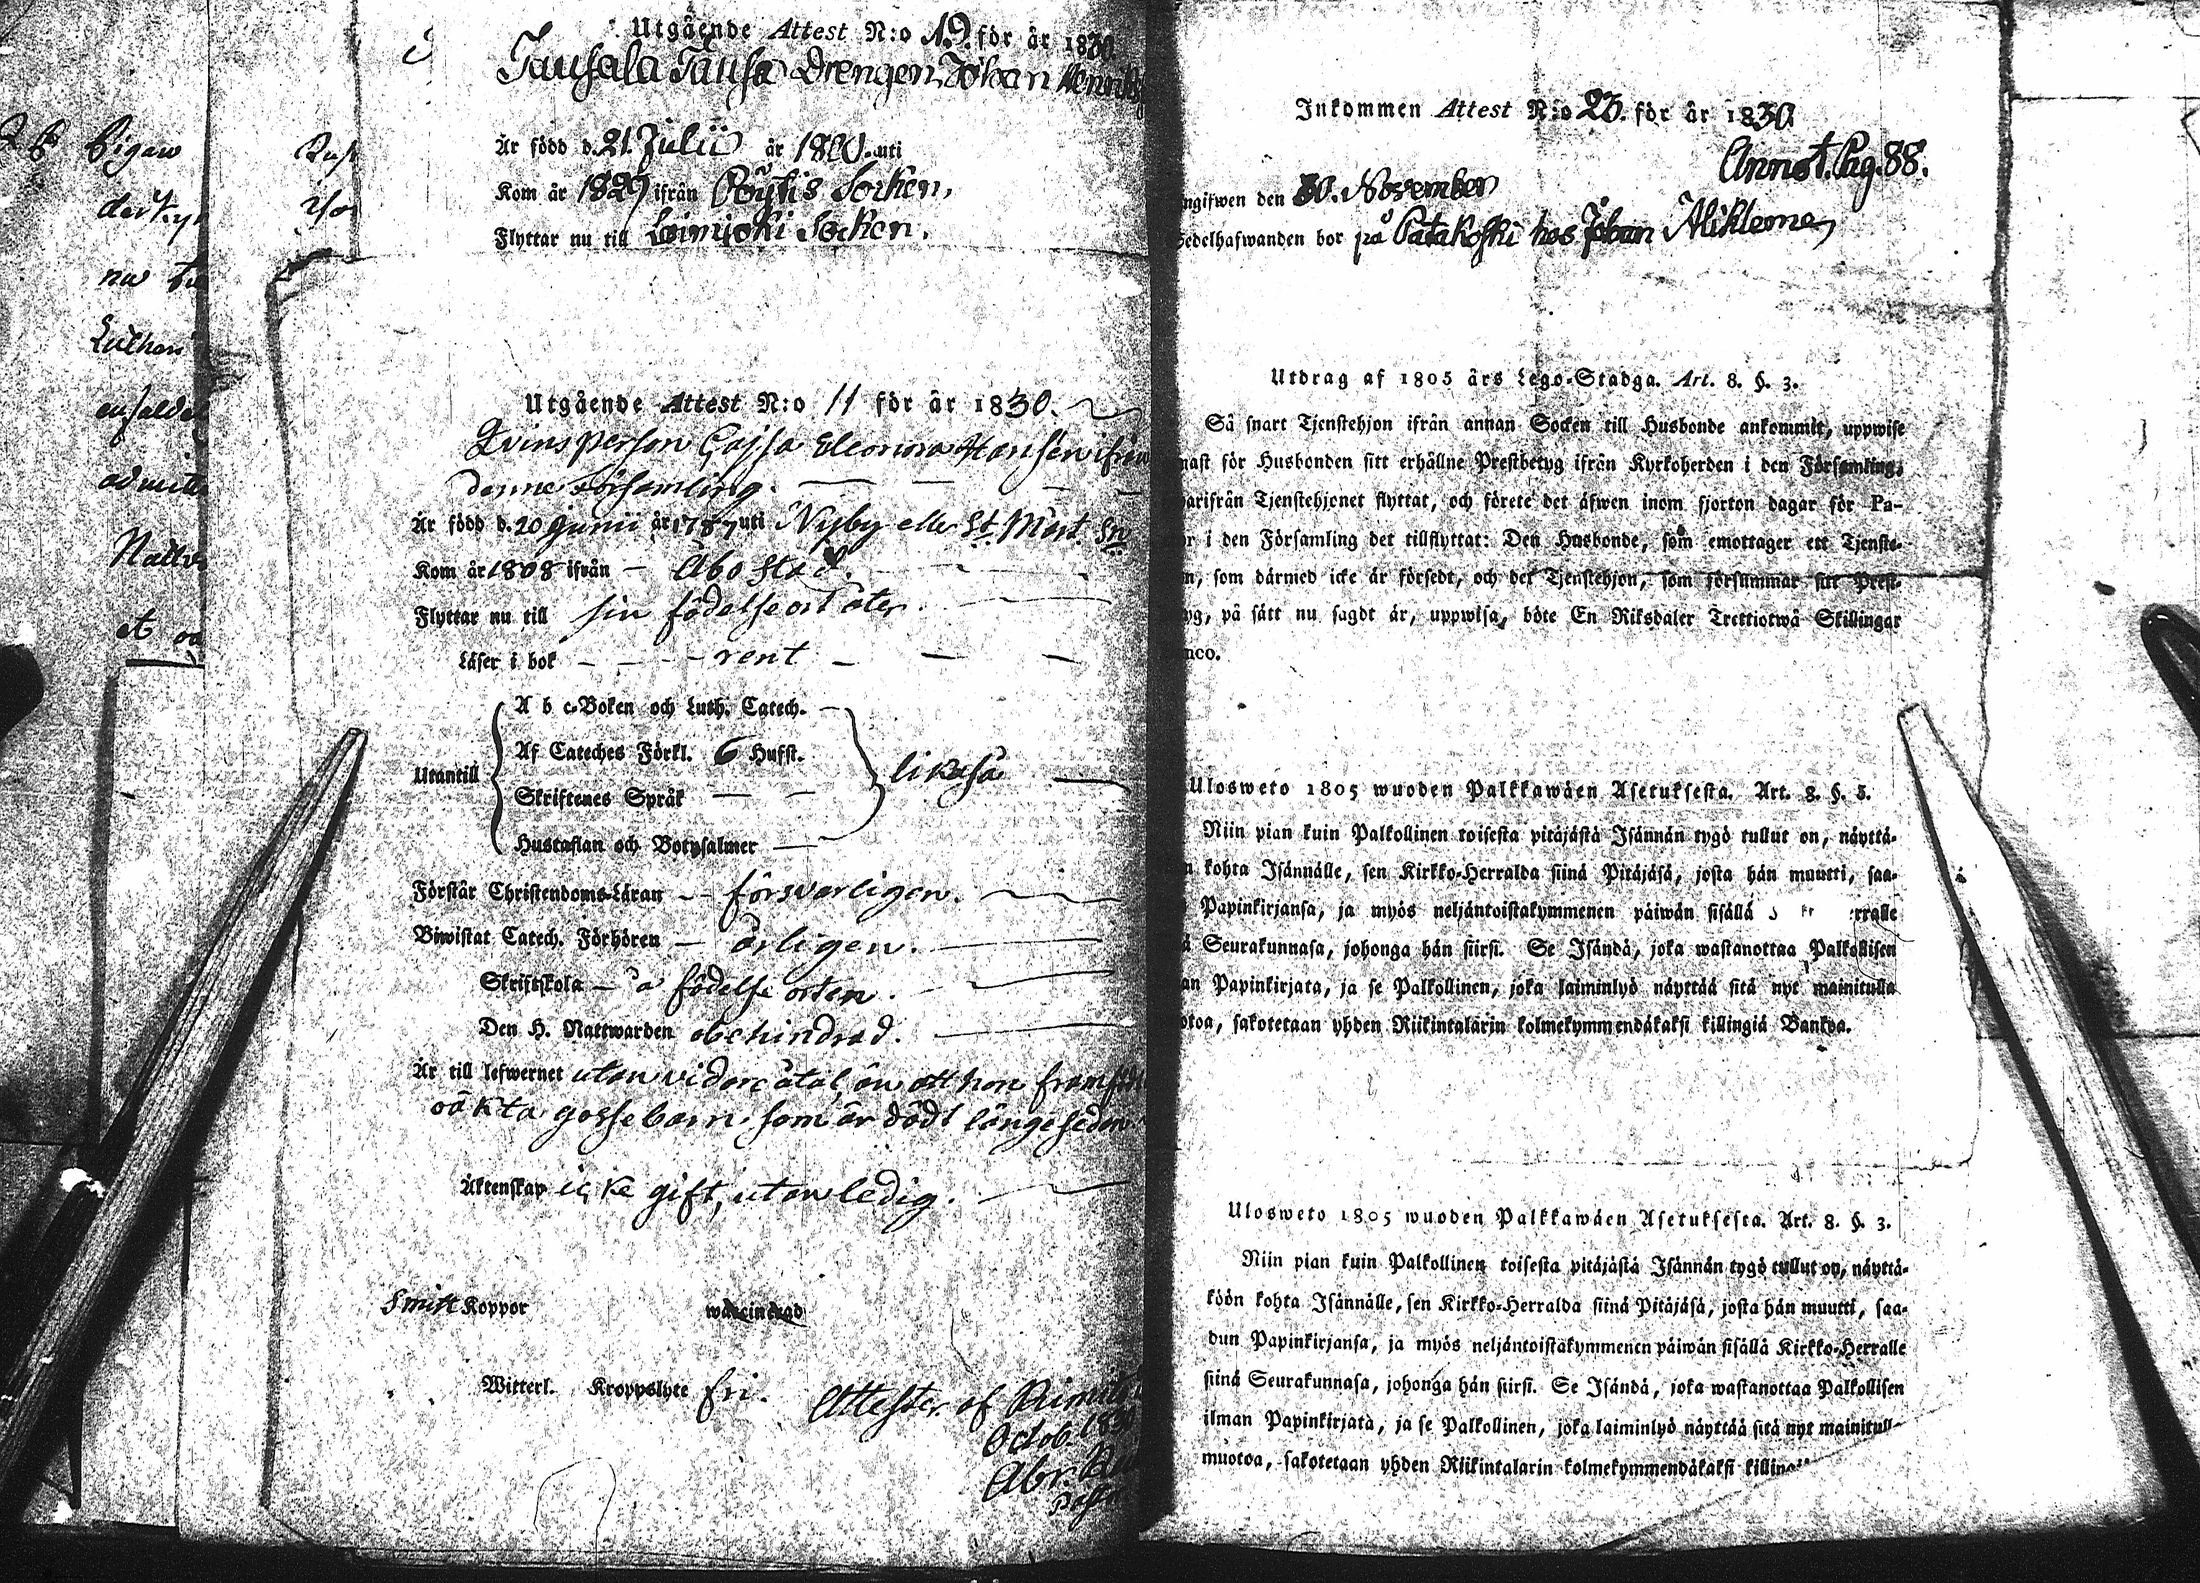 Utgående Attest N:o 19. för år 1830.
Drengen Johan
Är född d. 21. Julii år 1800. uti
Kom år 1829 ifrån Pöytis Socken,
Flyttar nu till Loimijoki Socken.
Utgående Attest N:o 11 för år 1830.
Qvinsperson Cajsa Eleonora Hansén ifrån
denne Församling.
Är född d. 20 Junii år 1787 uti Nyby eller St. Mört. Sn
Kom år 1808 ifrån Åbo Stad.
Flyttar nu till sin födelseort åter.
Läser i bok rent
A b c-Boken och Luth. Catech.
Af Cateches Förkl. 6 Hufst.
Utantill likaså
Skriftenes Språk
Hustaflan och Botpsalmer
Förstår Christendoms-Läran försvarligen.
Biwistat Catech. Förhören årligen.
Skriftskola å födelse orten.
Den H. Nattwarden obehindrad.
Är till lefwernet utan vidare åtal, än att hon framfödt
oäkta gossebarn, som är dödt länge sedan
Äktenskap icke gift, utan ledig.
Smitt Koppor
Witterl. Kroppslyte fri.
Attester. af Rimito
Octob. 1830
Abr.
ð bigaw
na
Luthers
admitt
Nattv
Inkommen Attest N:o 23. för år 1830
Annot. Pag. 88.
ngifwen den 30. November
Sedelhafwanden bor på Patakoski hos Johan
Utdrag af 1805 års Lego-Stadga. Art. 8. §. 3.
Så snart Tjenstehjon ifrån annan Socken till Husbonde ankommit, uppwise
nast för Husbonden sitt erhållne Prestbetyg ifrån Kyrkoherden i den Församling,
warifrån Tjenstehjonet flyttat, och förete det äfwen inom fjorton dagar för Pa-
or i den Församling det tillflyttat: Den Husbonde, som emottager ett Tjenste-
n, som därmed icke är försedt, och det Tjenstehjon, som försummar sitt Prest-
yg, på sätt nu sagdt är, uppwisa, böte En Riksdaler Trettiotwå Skillingar
nco.
Ulosweto 1805 wuoden Palkkawäen Asetuksesta. Art. 8. §. 3.
Niin pian kuin Palkollinen toisesta pitäjästä Isännän tygö tullut on, näyttä-
n kohta Isännälle, sen Kirkko-Herralda siinä Pitäjäsä, josta hän muutti, saa-
Papinkirjansa, ja myös neljäntoistakymmenen päiwän sisällä erralle
ä Seurakunnasa, johonga hän siirsi. Se Isändä, joka wastanottaa Palkollisen
an Papinkirjata, ja se Palkollinen, joka laiminlyö näyttää sitä nyt mainitulla
otoa, sakotetaan yhden Riikintalarin kolmekymmendäkaksi killingiä Bankoa.
Ulosweto 1805 wuoden Palkkawäen Asetuksesta. Art. 8. §. 3.
Niin pian kuin Palkollinen toisesta pitäjästä Isännän tygö tullut on, näyttä-
köön kohta Isännälle, sen Kirkko-Herralda siinä Pitäjäsä, josta hän muutti, saa-
dun Papinkirjansa, ja myös neljäntoistakymmenen päiwän sisällä Kirkko-Herralle
siinä Seurakunnasa, johonga hän siirsi. Se Isändä, joka wastanottaa Palkollisen
ilman Papinkirjata, ja se Palkollinen, joka laiminlyö näyttää sitä nyt mainitull
muotoa, sakotetaan yhden Riikintalarin kolmekymmendäkaksi killingi